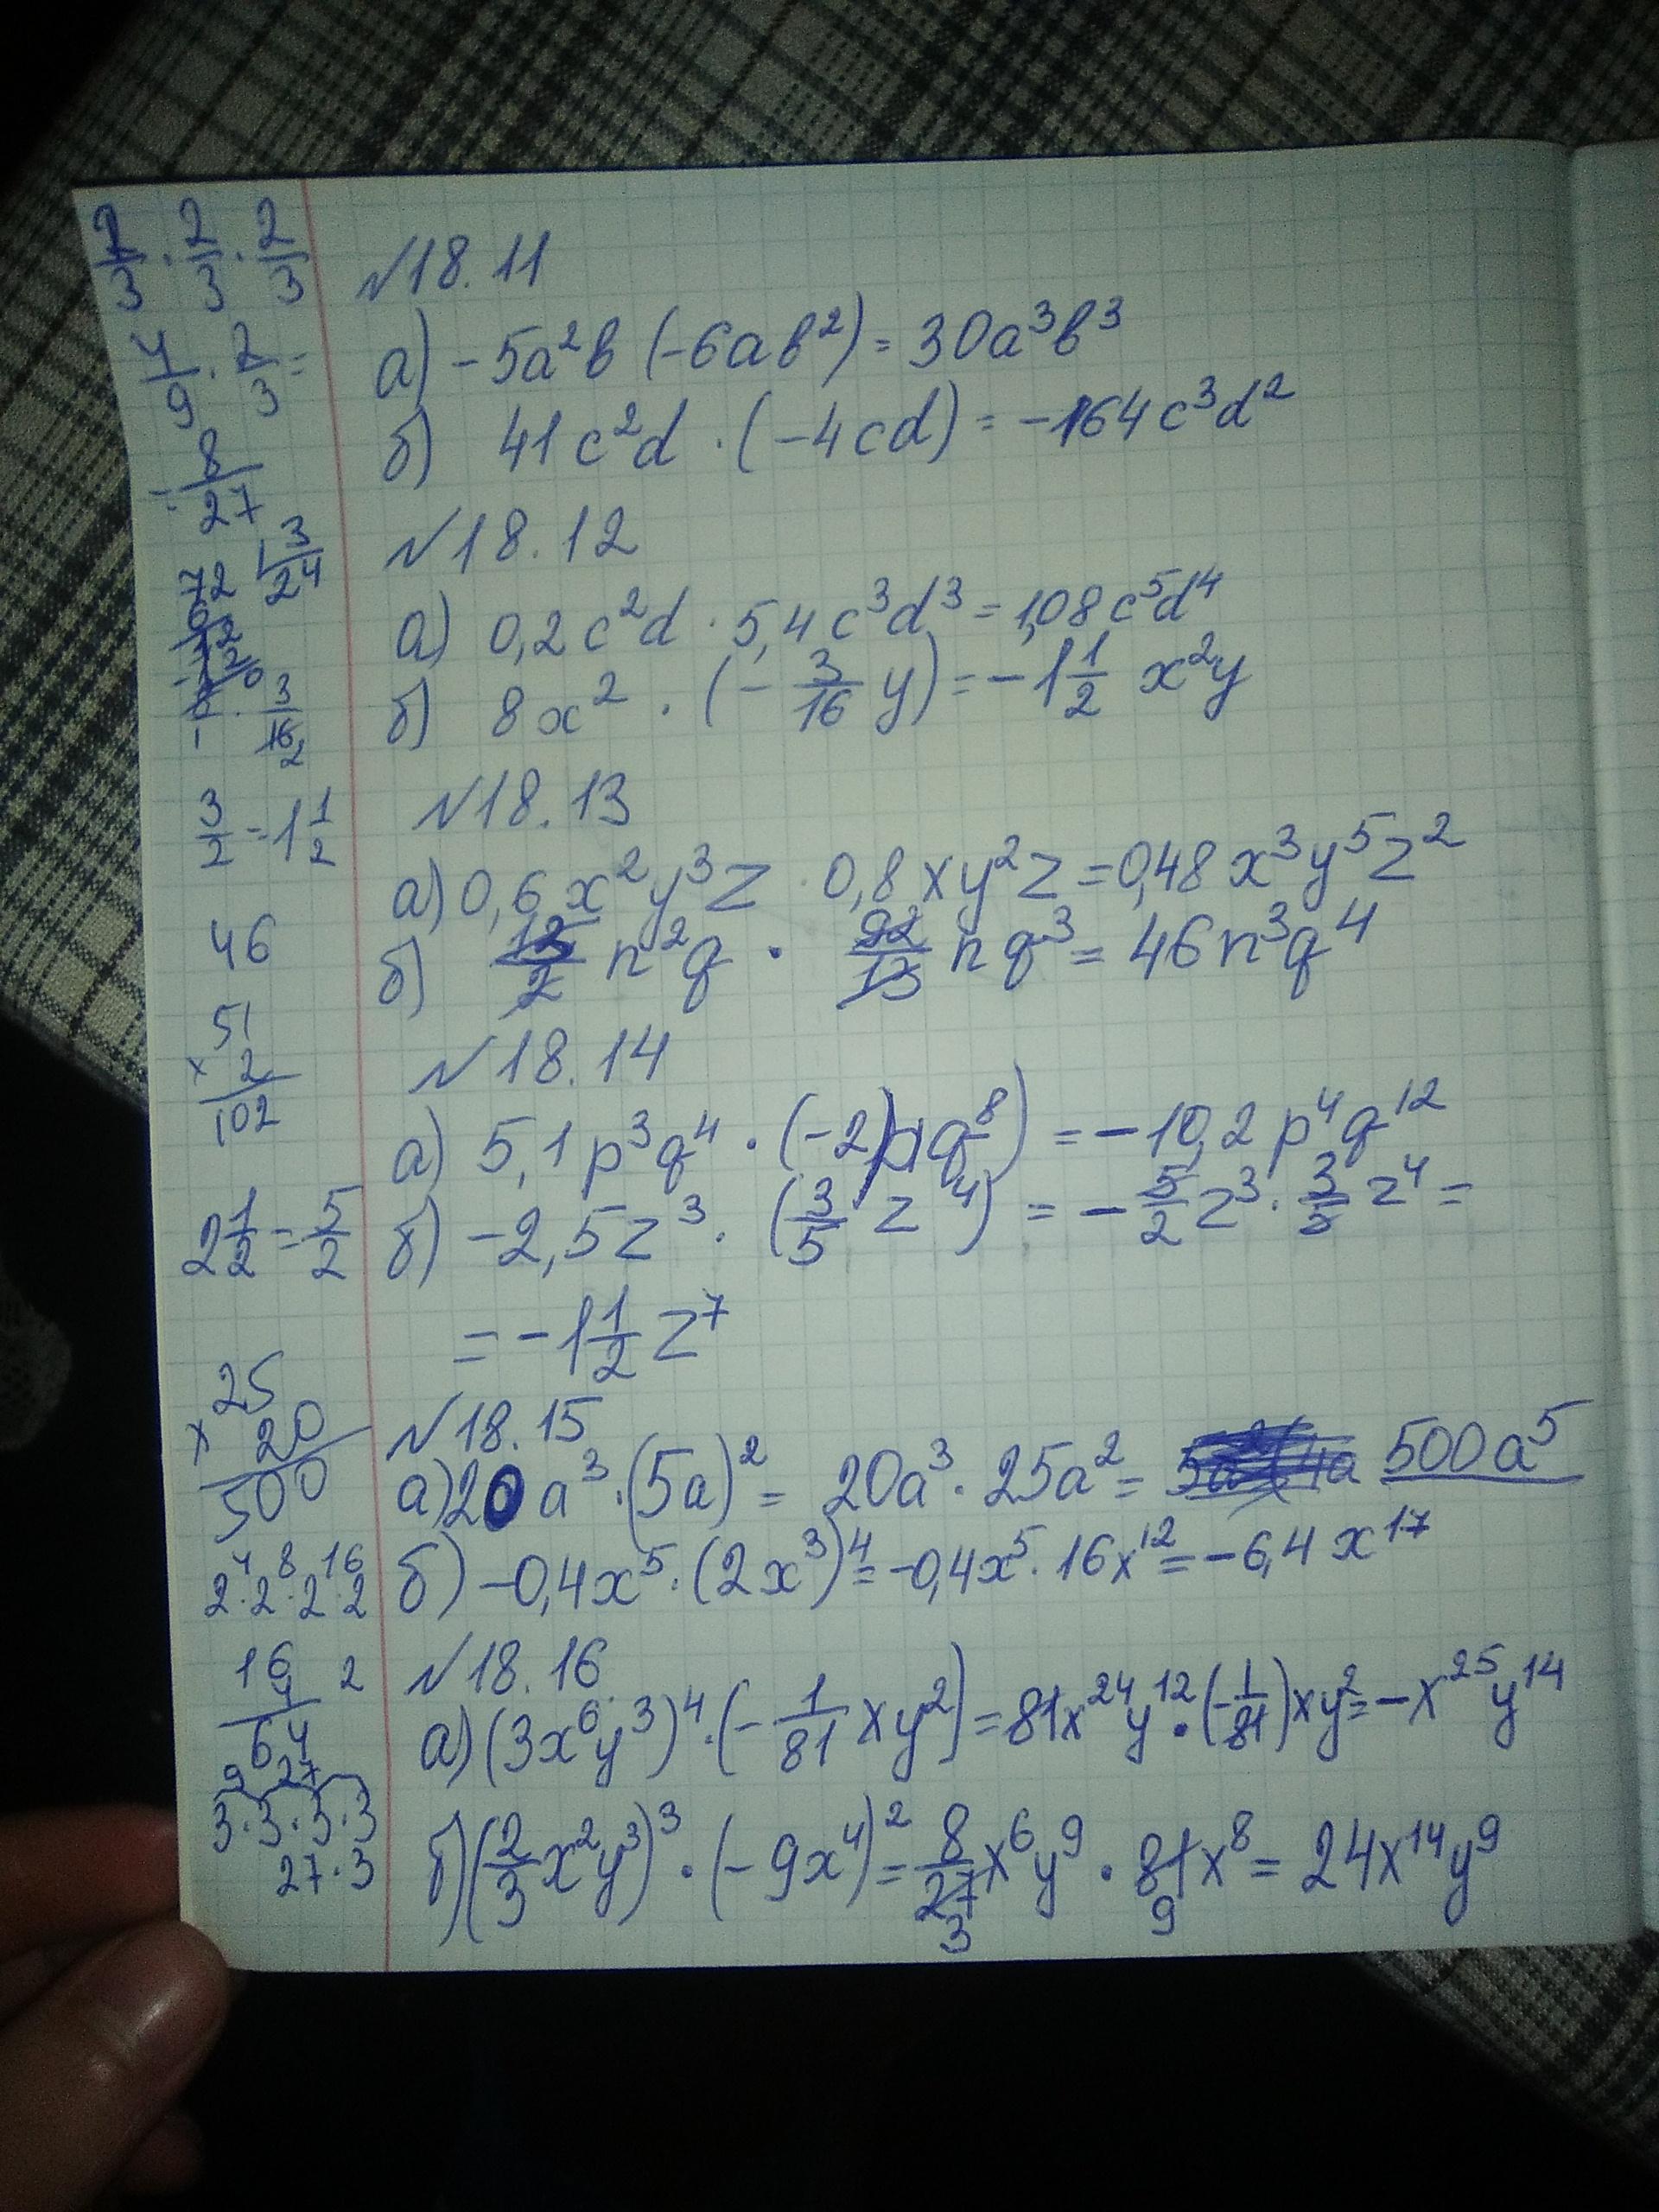 2/3 · 2/3 · 2/3
4/9 · 2/3 =
= 8/27
72 3
24
3/16 2
3/2 = 1 1/2
46
51
× 2
102
2 1/2 = 5/2
25
× 20
500
4 8 16
2 · 2 · 2 · 2
16 2
4
64
9 27
3 · 3 · 3 · 3
27 · 3
№18.11
а) -5a²b (-6ab²) = 30a³b³
б) 41c²d · (-4cd) = -164c³d²
№18.12
а) 0,2c²d · 5,4c³d³ = 1,08c⁵d⁴
б) 8x² · (- 3/16 y) = -1 1/2 x²y
№18.13
а) 0,6x²y³z · 0,8xy²z = 0,48x³y⁵z²
б) 13/2 n²q · 92/13 nq³ = 46n³q⁴
№18.14
а) 5,1p³q⁴ · (-2)pq⁸) = -10,2p⁴q¹²
б) -2,5z³ · (3/5 z⁴) = - 5/2 z³ · 3/5 z⁴ =
= -1 1/2 z⁷
№18.15
а) 20a³ · (5a)² = 20a³ · 25a² = 500a⁵
б) -0,4x⁵ · (2x³)⁴ = -0,4x⁵ · 16x¹² = -6,4x¹⁷
№18.16
а) (3x⁶y³)⁴ · (- 1/81 xy²) = 81x²⁴y¹² · (- 1/81) xy² = -x²⁵y¹⁴
б) (2/3 x²y³)³ · (-9x⁴)² = 8/27 x⁶y⁹ · 81x⁸ = 24x¹⁴y⁹
3 9